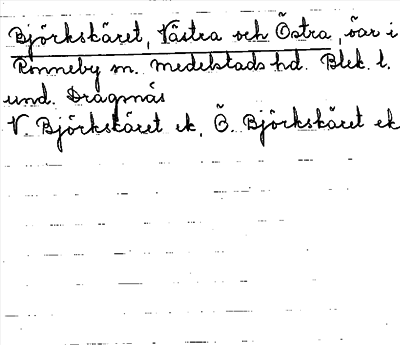 Björkskäret, Västra och Östra, öar i
Ronneby sn. Medelstads hd. Blek. l.
und. Dragnäs
V. Björkskäret ek, Ö. Björkskäret ek